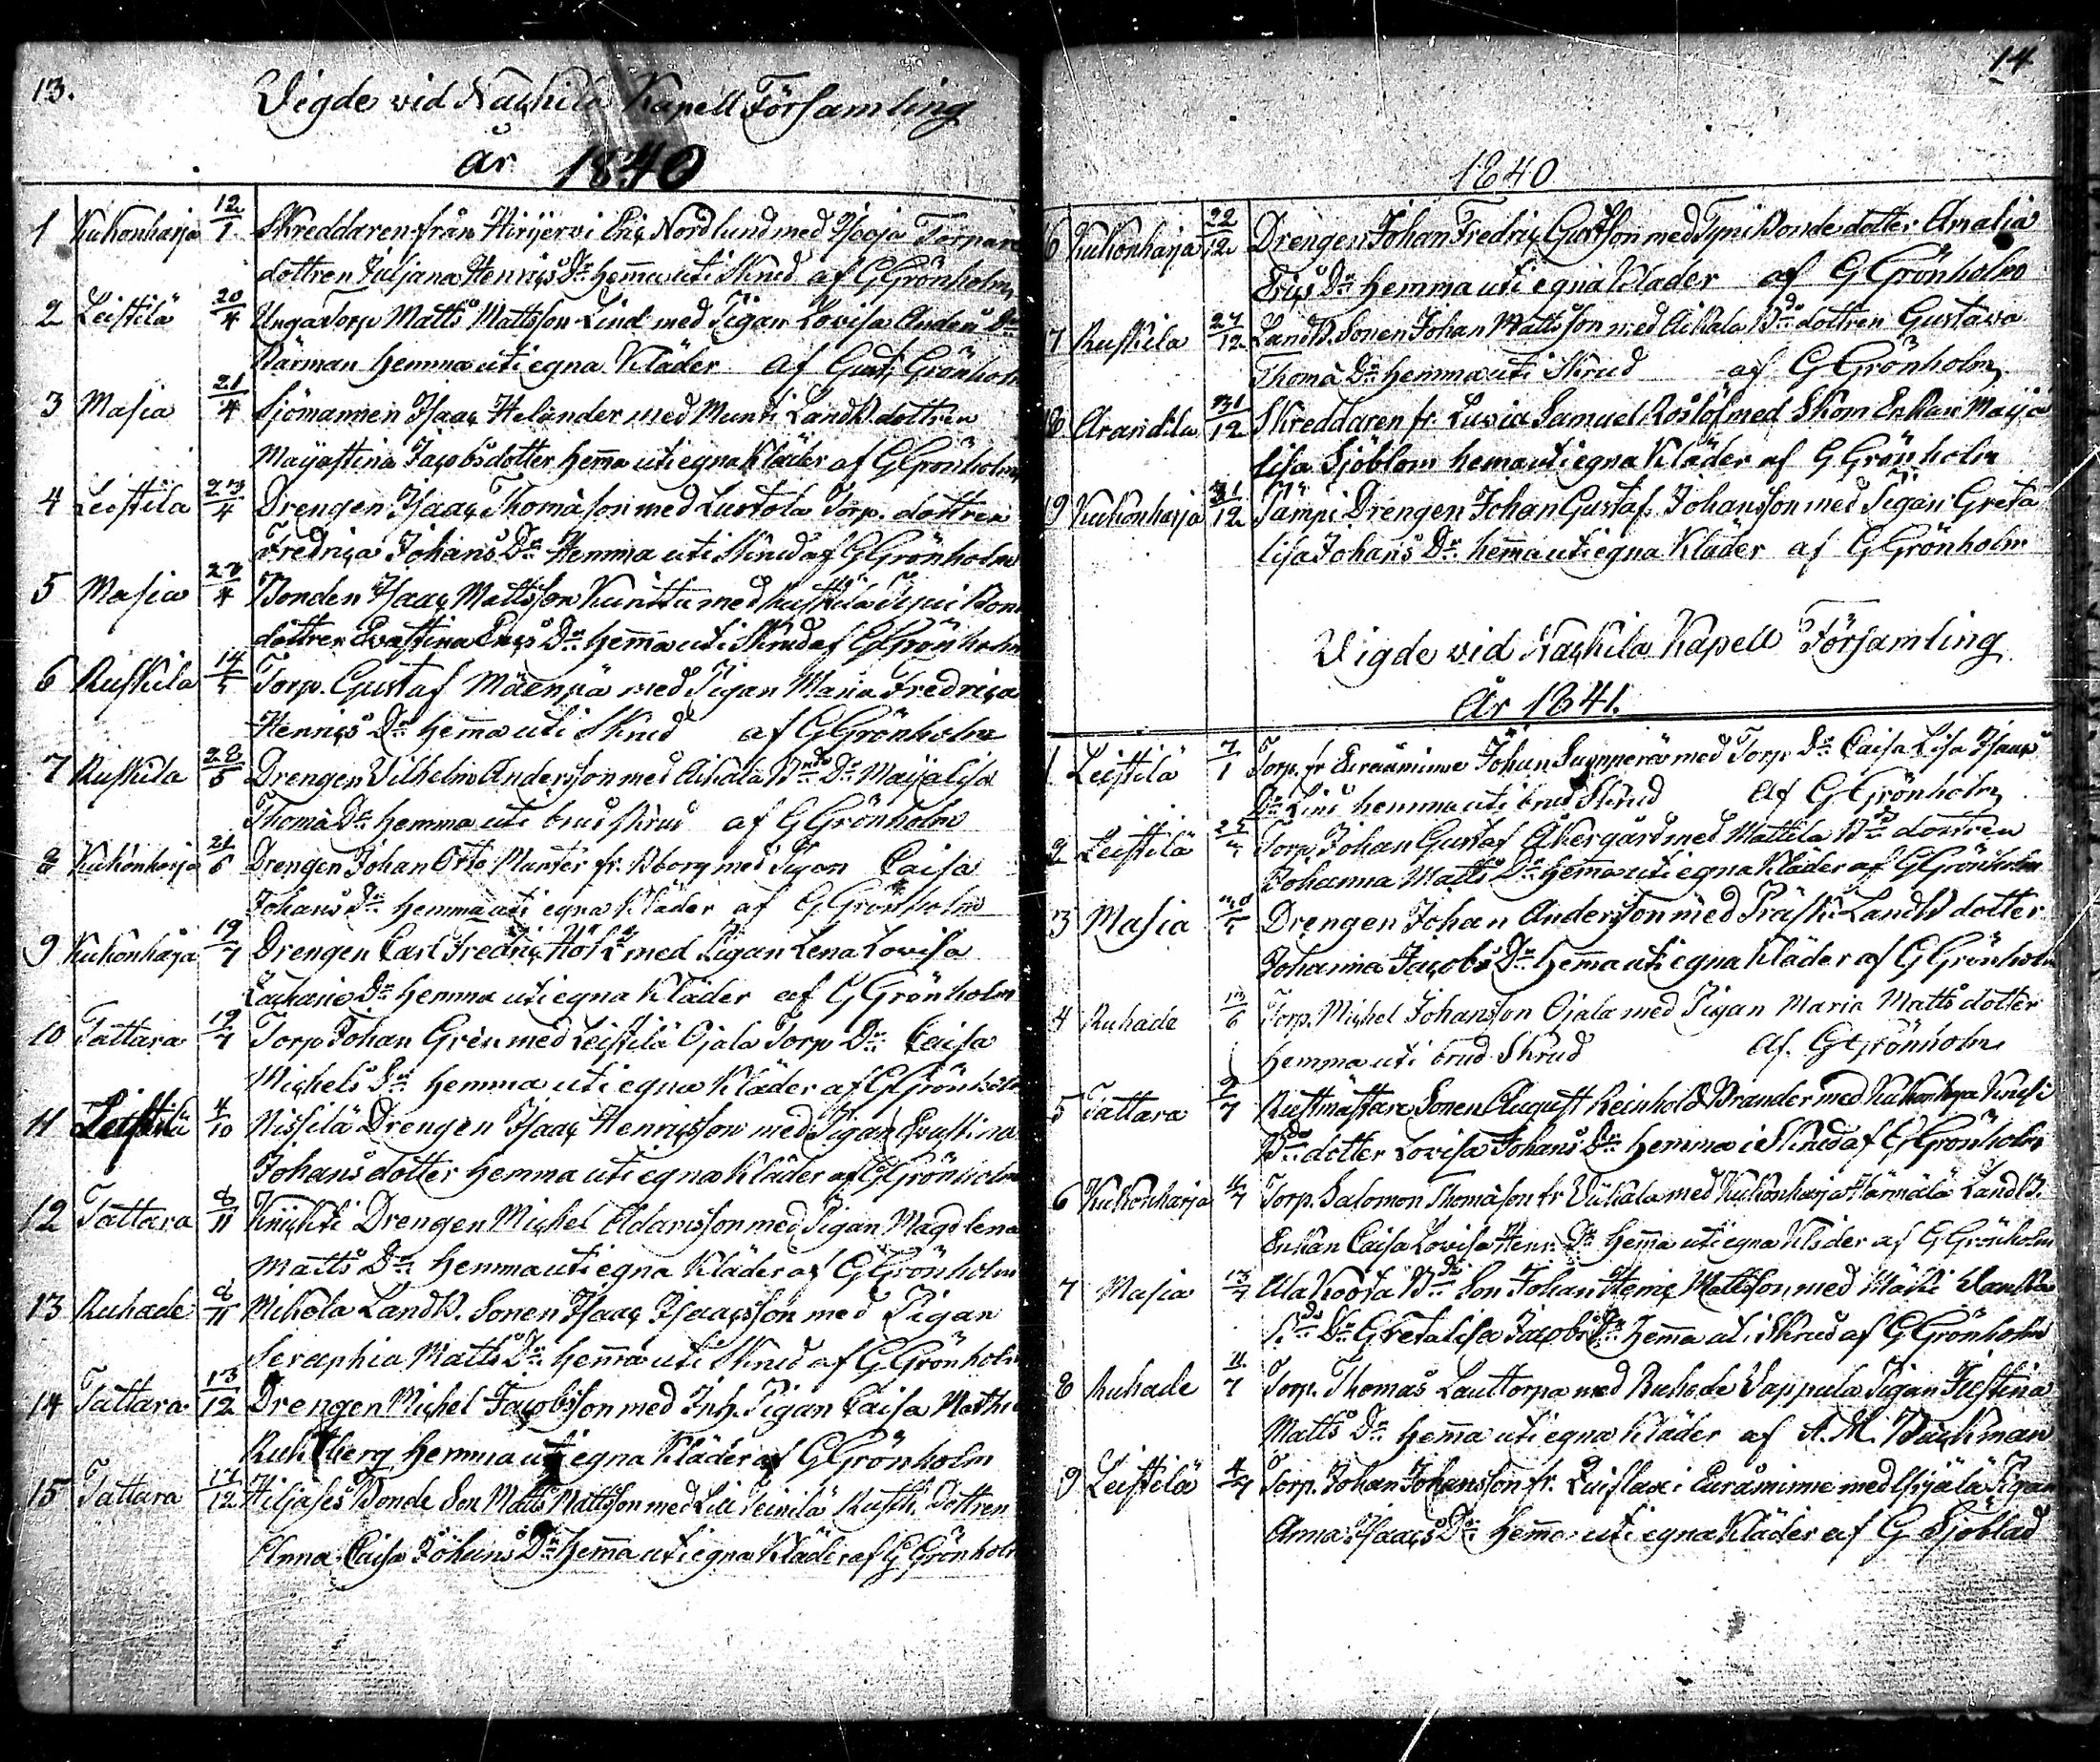 13.
Vigde vid Nackila Kapell Församling
år 1840
1 Kukonharja 12/1 Skreddaren från Hirijervi Eric Nordlund med Tornare
dottren Juljana Henrics Dr hemma uti Skrud af G Grönholm
2 Leistilä 20/4 Unga Torp Matts Mattsson Lind med Pigan Lovisa Anders Dr
Kärman hemma uti egna Kläder af Gust. Grönholm
3 Masia 21/4 Sjömannen Isaac Helander med Munti LandB. dottren
Majastina Jacobsdotter hemma uti egna Kläder af G Grönholm
4 Leistila 23/4 Drengen Isaac Thomasson med Lustola Torp. dottren
Fredrica Johans Dr Hemma uti Skrud af G Grönholm
5 Masia /4 Bonden Isaac Mattsson Kunttu med Bon
dottren Evastina Erics Dr hemma uti Skrud af G Grönholm
6 Ruskila 14/5 Torp. Gustaf Mäenpä med Pigan Maria Fredrica
Henrics Dr hemma uti Skrud af G Grönholm
7 Ruskila 28/5 Drengen Vilhelm Andersson med Aikala Bnde Dr Maijalisa
Thoma Dr hemma uti brud skrud af G Grönholm
8 Kukonharja 21/6 Drengen Johan Otto Munter fr. Åborg med Pigan Caisa
Johans Dr hemma uti egna Kläder af G Grönholm
9 Kukonharja 19/7 Drengen Carl Fredric med Pigan Lena Lovisa
Zacharie Dr hemma uti egna Kläder af G Grönholm
10 Tattara 19/7 Torp Johan Grén med Leistilä Ojala Torp Dr Caisa
Michels Dr hemma uti egna Kläder af G Grönholm
11 Leistilä 4/10 Nissilä Drengen Isaac Henricsson med Pigan Evastina
Johans dotter hemma uti egna Kläder af G Grönholm
12 Tattara 8/11 Knichti Drengen Michel Adamsson med Pigan Magdlena
Matts Dr hemma uti egna Kläder af G Grönholm
13 Ruhade 8/11 Mikola LandB. Sonen Isaac Isaacsson med Pigan
Seraphia Matts Dr hemma uti Skrud af G Grönholm
14 Tattara 13/12 Drengen Michel Jacobsson med Inh. Pigan Caisa Mathi
Ruhtberg hemma uti egna Kläder af G Grönholm
15 Tattara 17/12 Hiljases Bonde Son Matts Mattsson med Lill Rusth. dottren
Anna Caisa Johans Dr hemma uti egna Kläder af G Grönholm
14
1840
6 Kukonharja 22/12 Drengen Johan Fredric Gustsson med Tyni Bonde dotter Amalia
Erics Dr hemma uti egna Kläder af G Grönholm
7 Ruskila 27/12 LandB. Sonen Johan Mattsson med Aikala Bde dottren Gustava
Thoma Dr hemma uti Skrud af G Grönholm
18 Arandila 31/12 Skreddaren fr. Luvia Samuel Roslöf med Skom Enkan Maija
lisa Sjöblom hema uti egna Kläder af G Grönholm
9 Kukonharja 31/12 Tämpi Drengen Johan Gustaf Johansson med Pigan Greta
lisa Johans Dr hemma uti egna Kläder af G Grönholm
Vigde vid Nackila Kapell Församling
År 1841.
1 Leistilä 7/1 Torp. fr Euraåminne Johan med Torp Dr Caisa Lisa Isaacs
Dr Lind hemma uti brud Skrud af G Grönholm
2 Leistilä Torp. Johan Gustaf Åkergård med Mattila Bde dottren
Johanna Matts Dr hemma uti egna Kläder af G Grönholm
3 Masia Drengen Johan Andersson med Präski LandB dotter
Johanna Jacobs Dr hemma uti egna Kläder af G Grönholm
4 Ruhade 13/6 Torp. Michel Johansson Ojala med Pigan Maria Matts dotter
hemma uti brud Skrud af. G Grönholm
5 Tattara 2/7 Rustmästare Sonen August Reinhold Brander med Kukonharja
Bde dotter Lovisa Johans Dr hemma i Skrud af G Grönholm
6 Kukonharja 4/7 Torp. Salomon Thomasson fr Viikala med Kukonharja Hännälä LandB.
Enkan Caisa Lovisa Henr. Dr hemma uti egna Kläder af G Grönholm
7 Masia 13/7 Ala Koota Bde Son Johan Henric Mattsson med
Dr Gretalisa Jacobs Dr hemma uti Skrud af G Grönholm
8 Ruhade 11/7 Torp. Thomas Lauttorpa med Ruhade Vappula Pigan Justina
Matts Dr hemma uti egna Kläder af A. M. Backman
9 Leistilä Torp. Johan Johansson fr. Luislax i Euraåminne med Pigan
Anna Isaacs Dr hemma uti egna Kläder af G Sjöblad